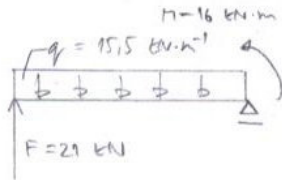 M=16 kN·m
q = 15,5 kN·m⁻¹
F=21 kN